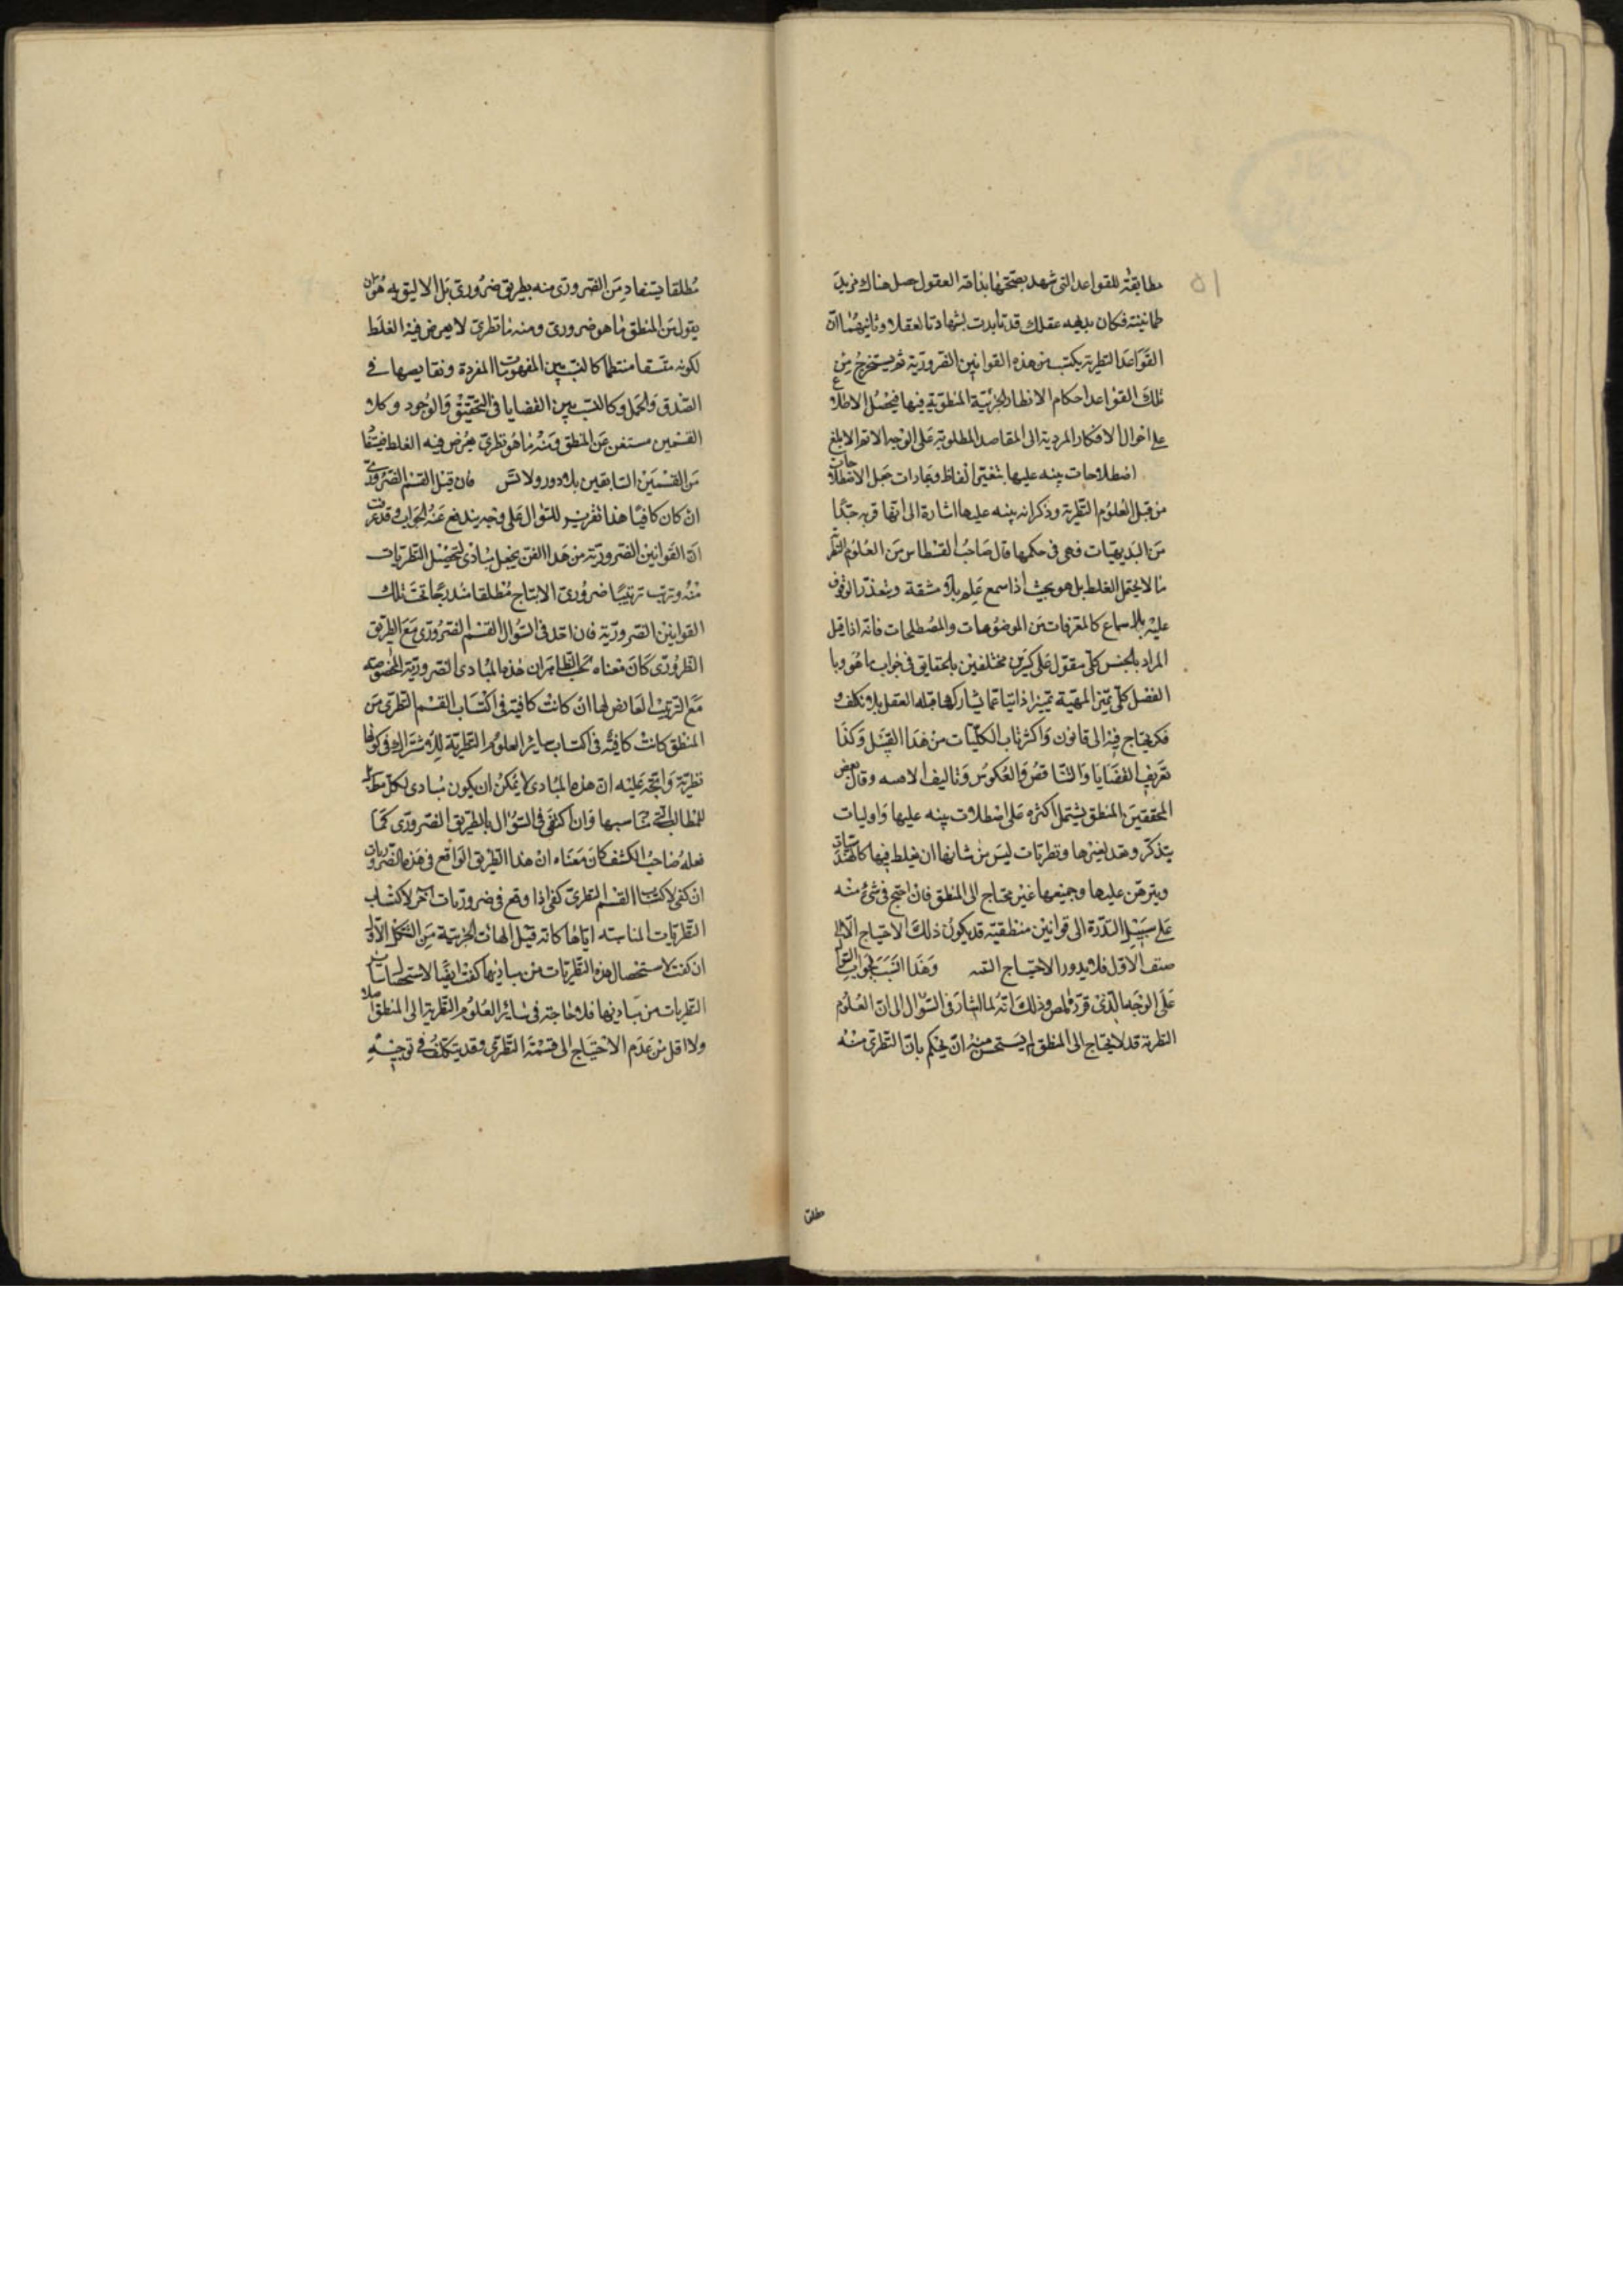 ٥١
مطابقة للقواعد التى شهد بصحتها بذاته العقول حصل هناك مزيد
طمانينة فكان بديهه عقلك قد تايدت بشهادة العقلا وثانيهما ان
القواعد النظرية يكتسب من هذه القوانين الضرورية ثم يستخرج من
تلك القواعد احكام الانظار الجزئية المنطقية فيها فيحصل الاطلاع
على احوال الافكار المردية الى المقاصد المطلوبة على الوجه الاتم الابلغ
اصطلاحات ينبه عليها بتغيير الفاظ وعبارات جعل الاصطلاحات
من قبل العلوم النظرية وذكر انه ينبه عليها اشارة الى انها قريبه جدا
من البديهيات فهى فى حكمها قال صاحب القسطاس من العلوم النظر
ما لا يحتمل الغلط بل هو بحيث اذا سمع علم بلا مشقة ويتعذر الوقوف
عليه بلا سماع كالمعرفات من الموضوعات والمصطلحات فانه اذا قيل
المراد بالجنس كلى مقول على كثيرين مختلفين بالحقايق فى جواب ما هو وبا
الفصل كلى يميز المهية تمييزا ذاتيا عما يشاركها قبله العقل بلا تكلف و
فكر يحتاج فيه الى قانون واكثر باب الكليات من هذا القبيل وكذا
تعريف القضايا والتناقض والعكوس وتاليف الاقيسه وقال بعض
المحققين المنطق يشتمل اكثره على اصطلاحات ينبه عليها واوليات
يتذكر وتعد لغيرها ونظريات ليس من شانها ان يغلط فيها كالهندسيات
ويبرهن عليها وجميعها غير محتاج الى المنطق فان احتيج فى شئ منه
على سبيل الندرة الى قوانين منطقية قد يكون ذلك الاحتياج الا الى
صنف الاول فلا يدور الاحتياج اليه وهذا انسب بجواب السؤال
على الوجه الذى قرر فى المص وذلك انه لما اشار فى السؤال الى ان العلوم
النظرية قد لا يحتاج الى المنطق لم يستحسن منه ان يحكم بان النظرى منه
مطلقا
مطلقا يستفاد من الضرورى منه بطريق ضرورى بل الاليق به هو ان
يقول من المنطق ما هو ضرورى ومنه ما نظرى لا يعرض فيه الغلط
لكونه متسقا منتظما كالنسب بين المفهومات المفردة ونقايضها فى
الصدق والحمل وكالنسب بين القضايا فى التحقيق والوجود وكلا
القسمين مستغن عن المنطق ومنه ما هو نظرى يعرض فيه الغلط فيستفا
من القسمين السابقين بلا دور ولا تس فان قيل القسم الضرورى
ان كان كافيا هذا تقرير للسؤال على وجه يندفع عنه الجواب وقد عرفت
ان القوانين الضرورية من هذا الفن يجعل مبادى لتحصيل النظريات
منه وترتب ترتيبا ضرورى الانتاج مطلقا مندرجا تحت تلك
القوانين الضرورية فان اخذ فى السؤال القسم الضرورى مع الطريق
الضرورى كان معناه بحسب الظاهر ان هذه المبادى الضرورية المخصوصه
مع الترتيب العارض لها ان كانت كافية فى اكتساب القسم النظرى من
المنطق كانت كافية فى اكتساب سائر العلوم النظرية للاشتراك فى كونها
نظرية واتجه عليه ان هذه المبادى لا يمكن ان يكون مبادى لكل مطلب
للمطالب التى تناسبها وان اكتفى فى السؤال بالطريق الضرورى كما
فعله صاحب الكشف كان معناه ان هذا الطريق الواقع فى هذه الضروريات
ان كفى لاكتساب القسم النظرى كفى اذا وقع فى ضروريات اخر لاكتساب
النظريات المناسبه اياها كانه قيل الهيات الجزئية من الشكل الاول
ان كفت لاستحصال هذه النظريات من مباديها كفت ايضا لاستحصال سائر
النظريات من مباديها فلا حاجة فى سائر العلوم النظرية الى المنطق اصلا
ولا اقل من عدم الاحتياج الى قسمة النظرى وقد يتكلف فى توجيهه